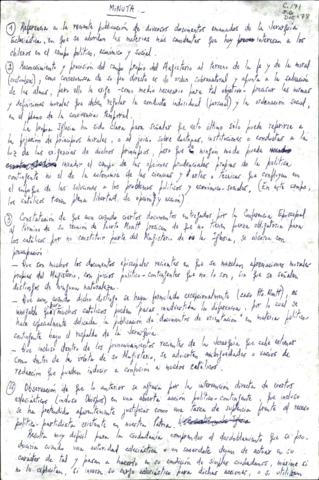 MINUTA.-
① Referencia a la reciente publicación de diversos documentos emanados de la Jerarquía
Eclesiástica, en que se abordan las materias más candentes que hoy interesan a los
chilenos en el campo político, económico y social.
② Reconocimiento y precisión del campo propio del Magisterio al terreno de la fe y de la moral
como consecuencia de su fin directo de orden sobrenatural y apunta a la salvación
de las almas, pero ello le exige como medio necesario para tal objetivo precisar las normas
y definiciones morales que deben regular la conducta individual (personal) y la ordenación social,
en el plano de la convivencia temporal.
La propia Iglesia ha sido clara para señalar que esto último solo puede referirse a
la fijación de principios morales, o al juicio sobre doctrinas, instituciones o conductas a la
luz de las exigencias de dichos principios, pero que de ningún modo puede
invadir el campo de las opciones prudenciales propias de la política
contingente ni el de la autonomía de las ciencias y artes o técnicas que configuran
el enfoque de las soluciones a los problemas políticos y económico-sociales. (En este campo,
los católicos tienen plena libertad de opinión y acción)
③ Constatación de que aun cuando ciertos documentos entregados por la Conferencia Episcopal
al término de su reunión de Puerto Montt precisan de que no tienen fuerza obligatoria para
los católicos por no constituir parte del Magisterio de la Iglesia, se observa con
preocupación
- Que son muchos los documentos episcopales recientes en que se mezclan apreciaciones morales
propias del Magisterio, con juicios político-contingentes que no lo son, sin que se señalen
distingos de ninguna naturaleza.
- Que aun cuando dicho distingo se haya formulado excepcionalmente (caso Pto. Montt), es
innegable que muchos católicos pueden pasar inadvertida la diferencia, por lo cual se
hace especialmente delicada la publicación de documentos de orientación en materias político-
contingentes bajo el respaldo de la Jerarquía.
- Que incluso dentro de los pronunciamientos recientes de la Jerarquía que cabe estimar
como dentro de la órbita de su Magisterio, se advierten ambigüedades o vacíos de
redacción que pueden inducir a confusión a muchos católicos.
④ Observación de que lo anterior se agrava por la intervención directa de ciertos
eclesiásticos (incluso Obispos) en una abierta acción político-contingente, que incluso
se ha pretendido aparentemente justificar como una tarea de suplencia frente al receso
político-partidista existente en nuestra Patria.
Resulta muy difícil para la ciudadanía comprender el desdoblamiento que se pro-
duciría cuando una autoridad eclesiástica o un sacerdote dejan de actuar en su
carácter de tal y pasan a hacerlo en su condición de simples ciudadanos, máxime si
no lo explicitan, si invocan su cargo eclesiástico para dichas acciones, o si utilizan